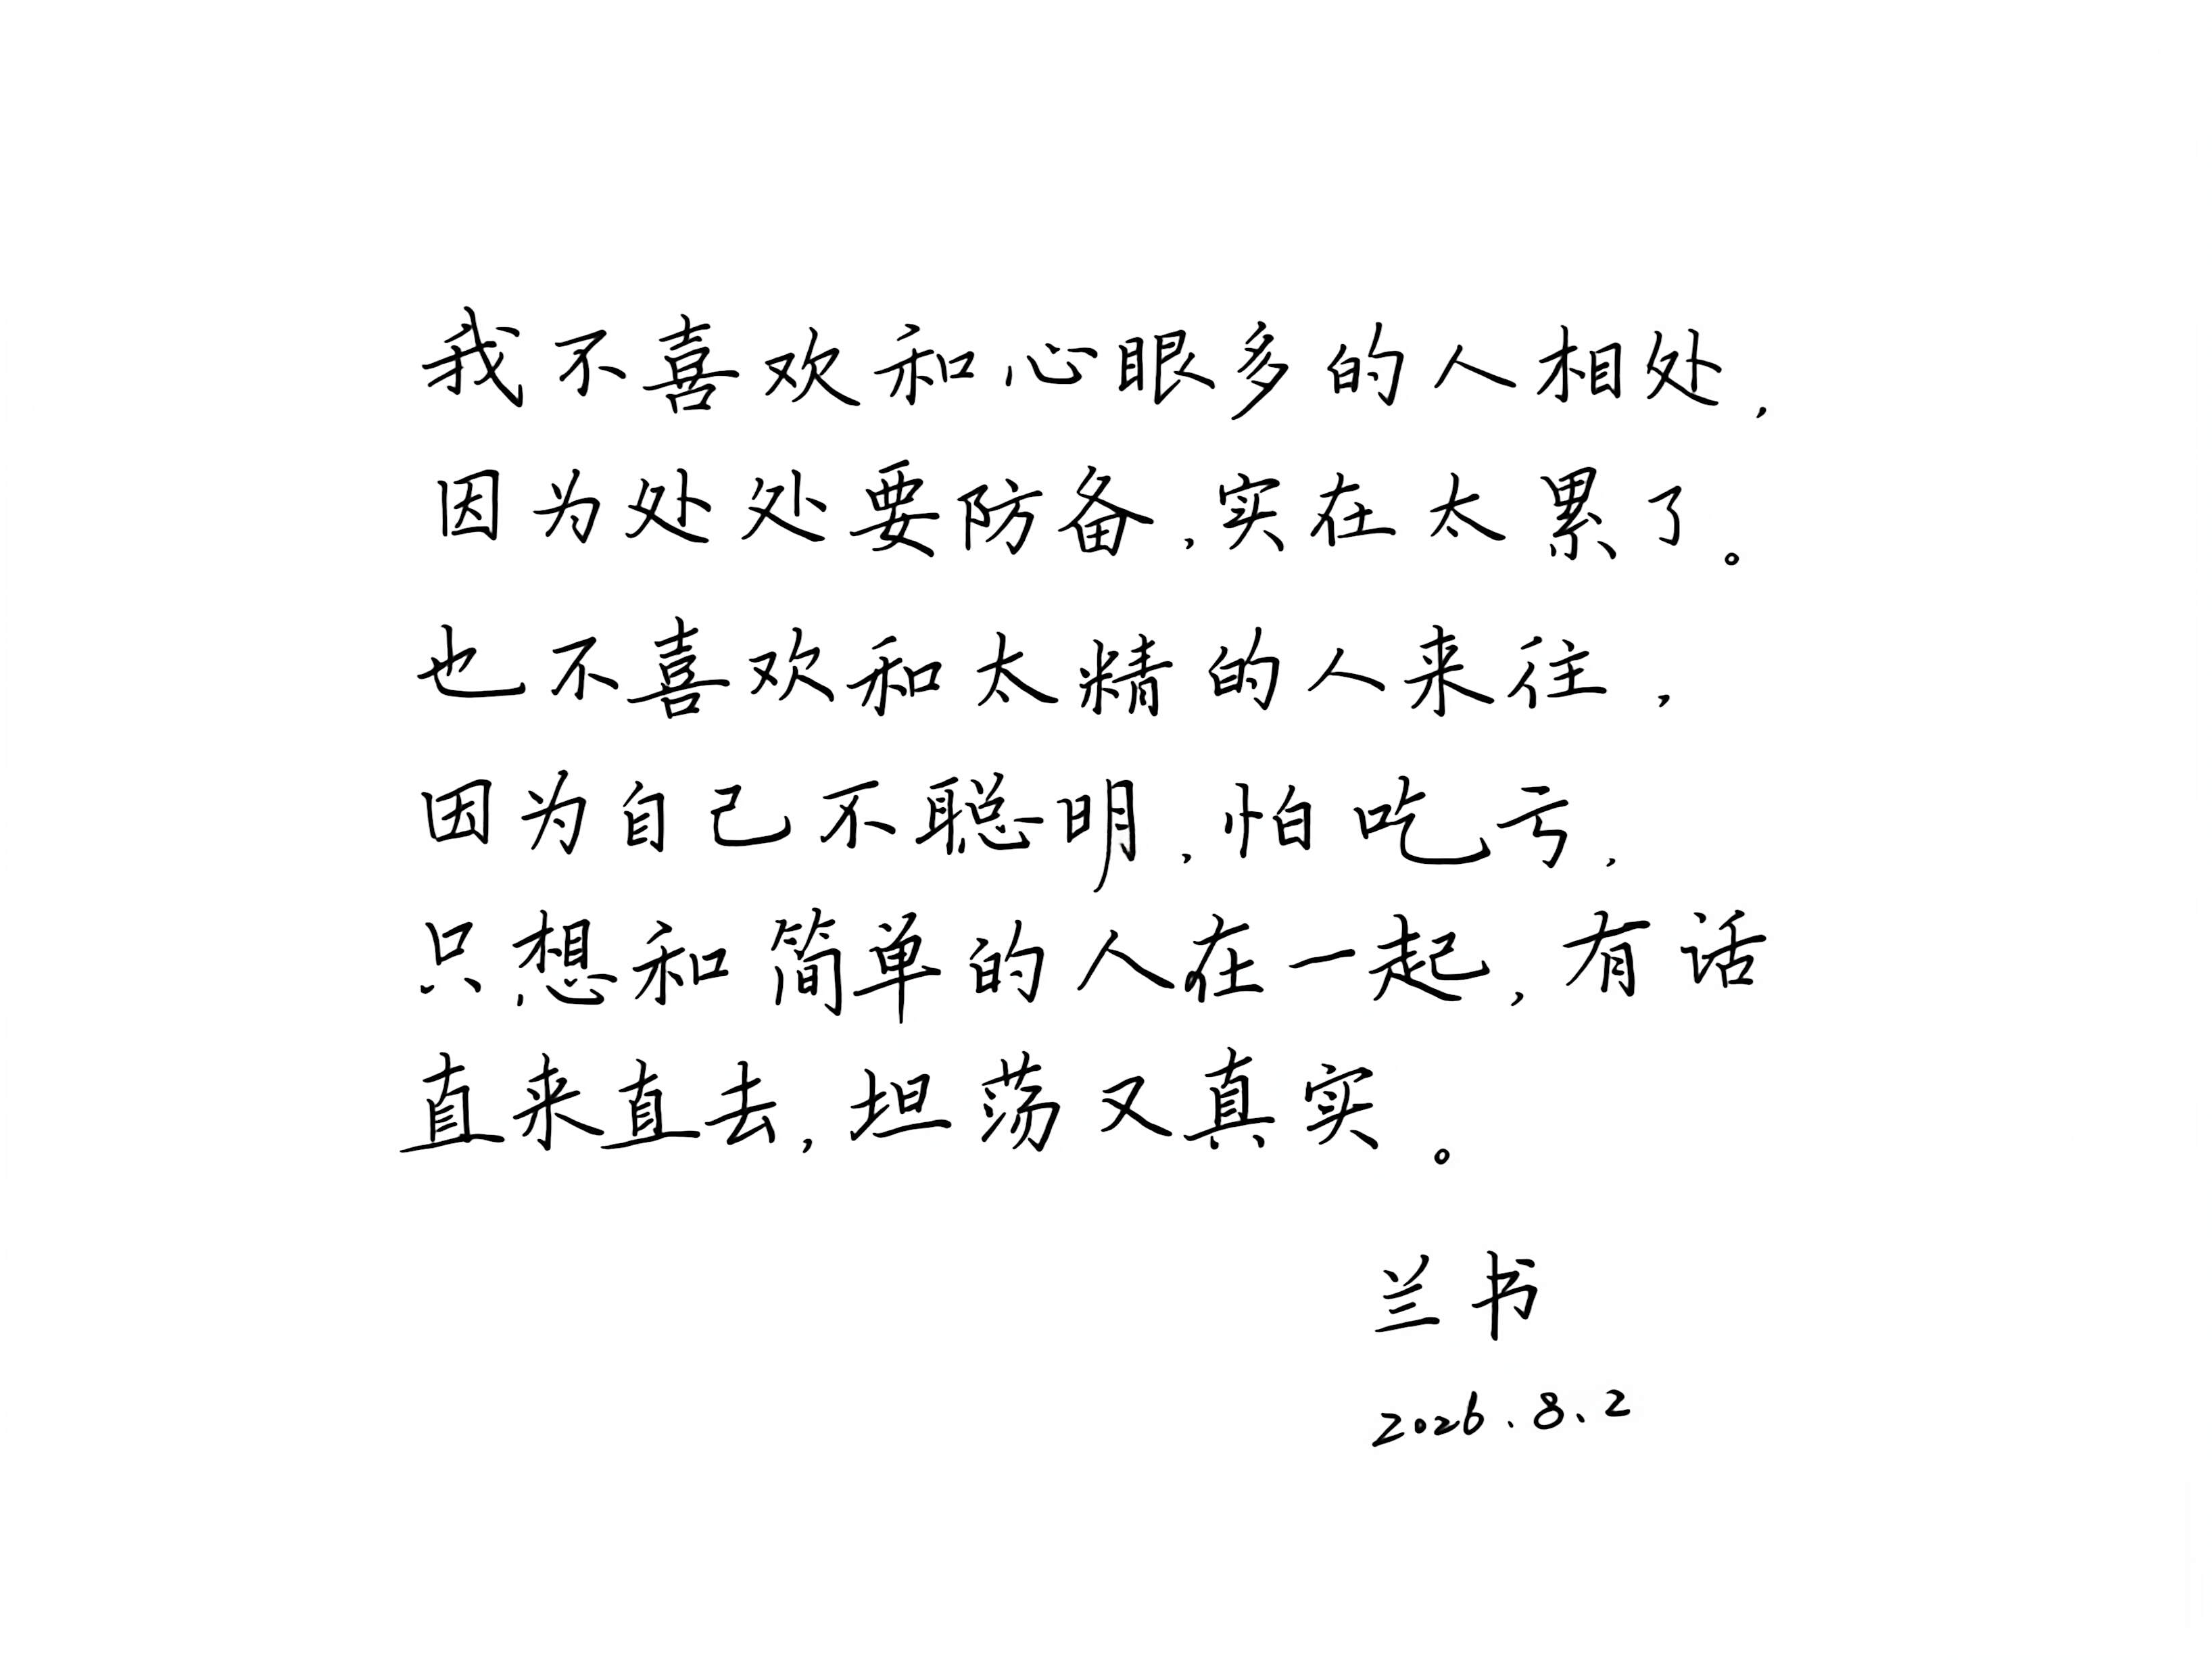 我不喜欢和心眼多的人相处，
因为处处要防备，实在太累了。
也不喜欢和太精的人来往，
因为自己不聪明，怕吃亏，
只想和简单的人在一起，有话
直来直去，坦荡又真实。
兰书
2026.8.2